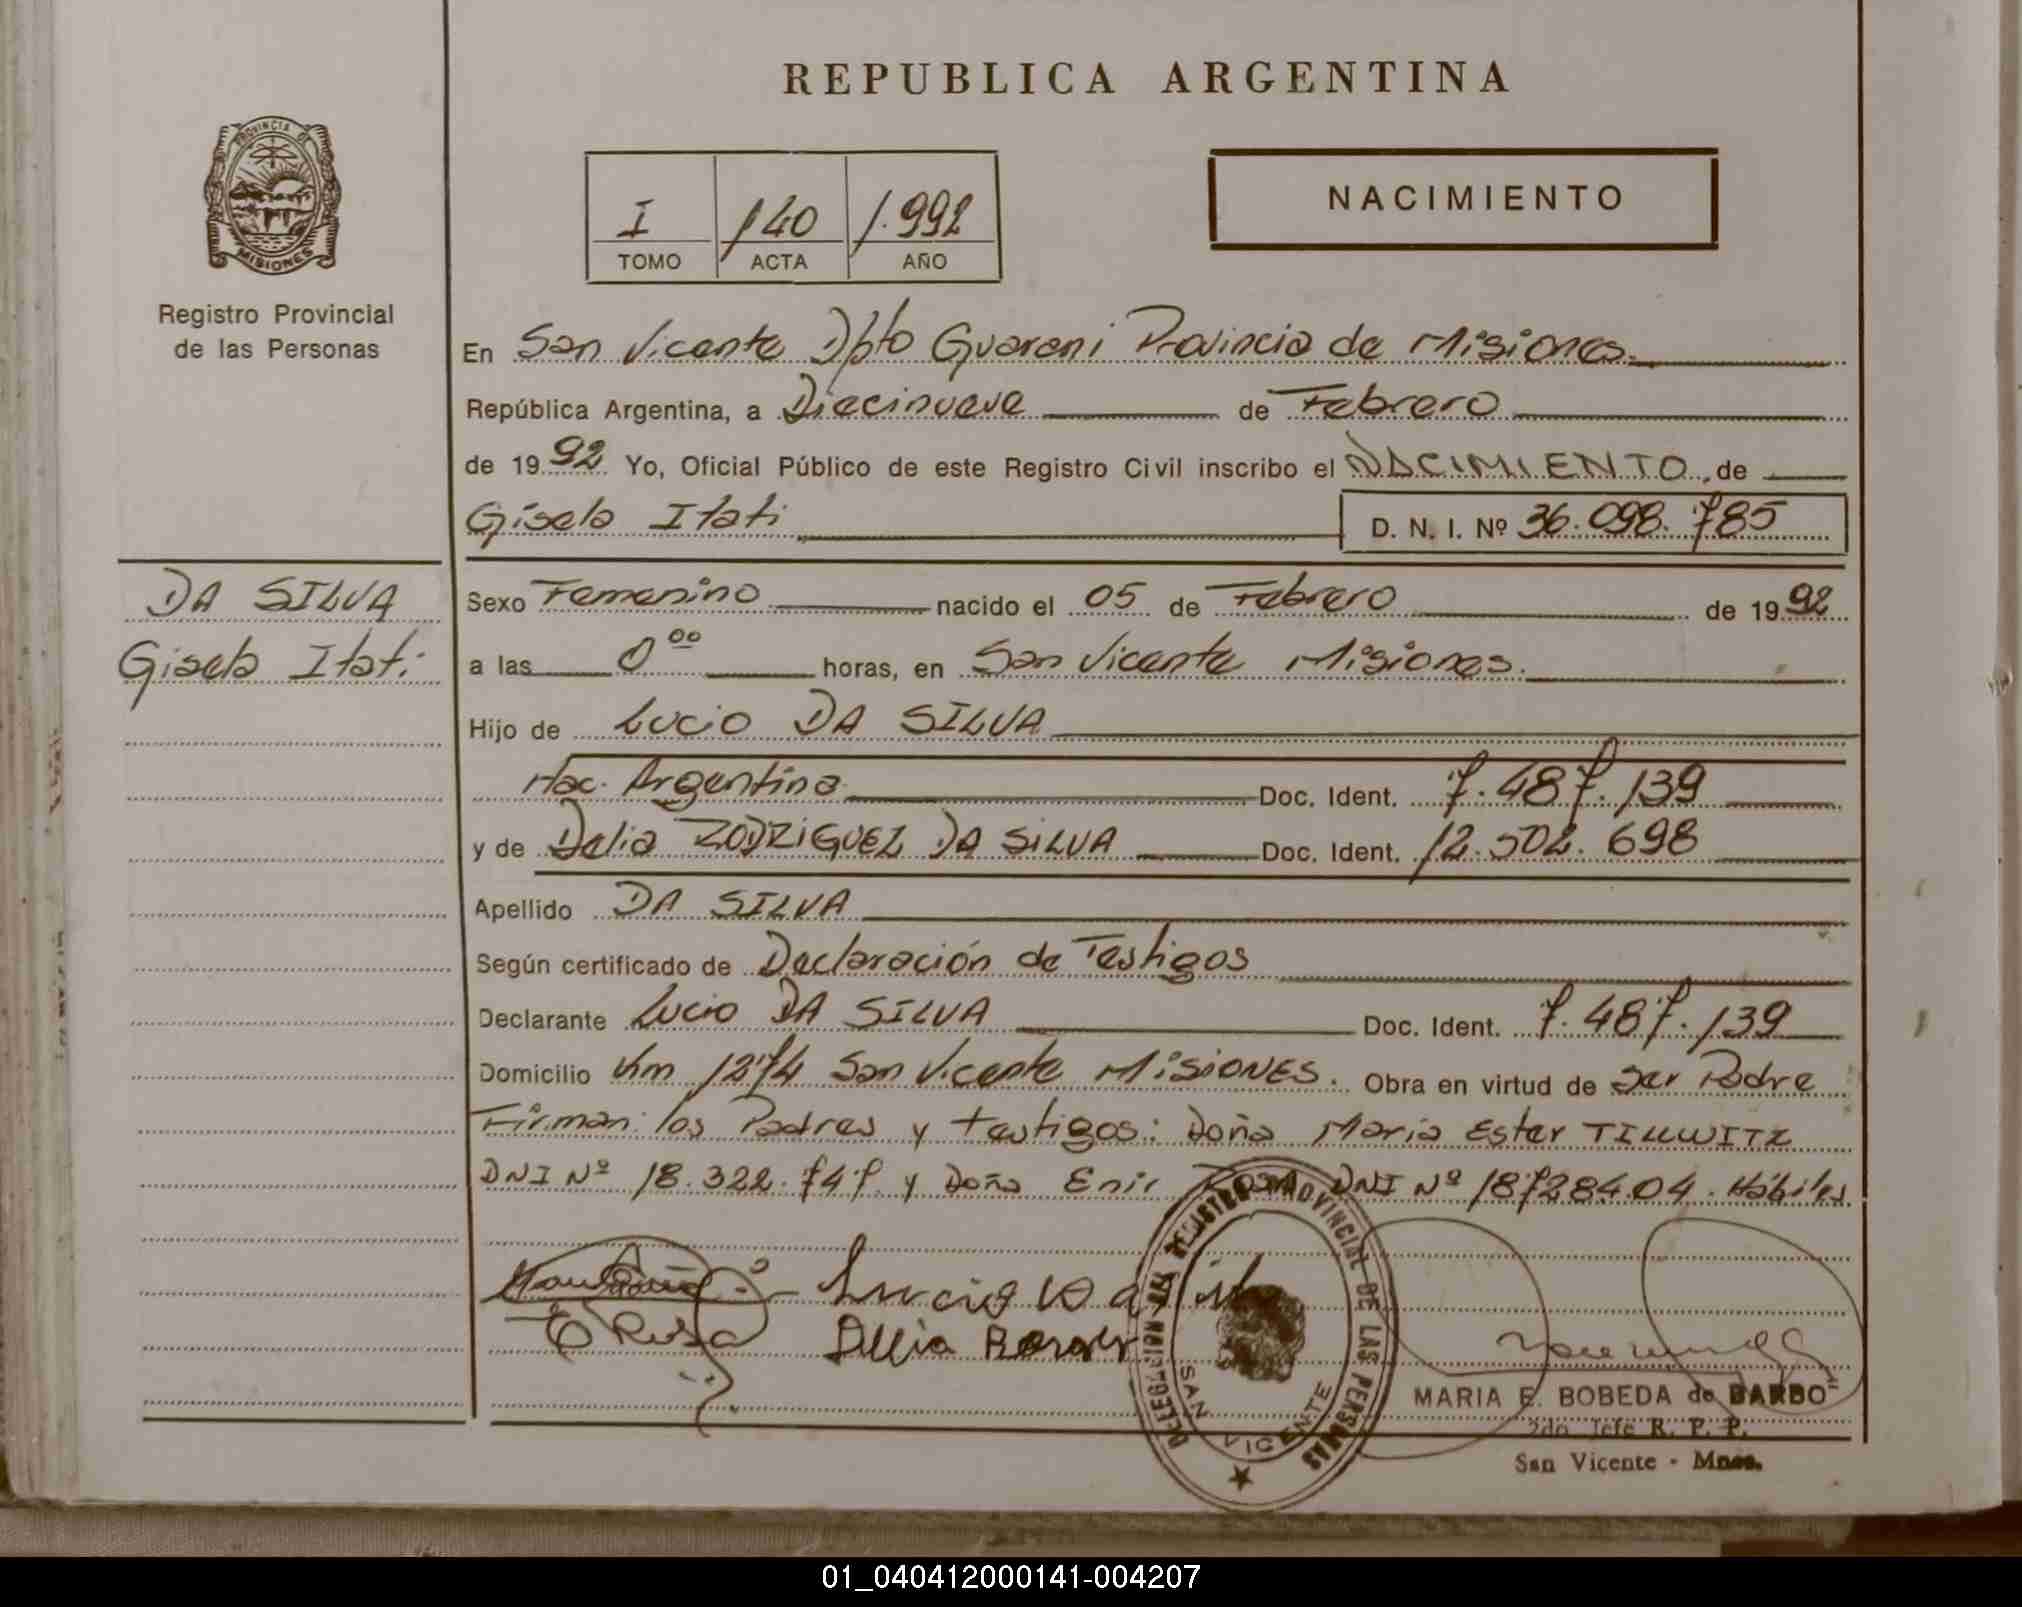 REPUBLICA ARGENTINA
PROVINCIA DE
MISIONES
Registro Provincial
de las Personas
NACIMIENTO
I 140 1.992
TOMO ACTA AÑO
En San Vicente Dpto Guarani Provincia de Misiones.
República Argentina, a Diecinueve de Febrero
de 1992 Yo, Oficial Público de este Registro Civil inscribo el NACIMIENTO, de
Gisela Itati D. N. I. Nº 36.098.785
DA SILVA
Gisela Itati
Sexo Femenino nacido el 05 de Febrero de 1992
a las 0⁰⁰ horas, en San Vicente Misiones.
Hijo de Lucio DA SILVA
Nac. Argentina Doc. Ident. 7.487.139
y de Delia RODRIGUEZ DA SILVA Doc. Ident. 12.502.698
Apellido DA SILVA
Según certificado de Declaración de Testigos
Declarante Lucio DA SILVA Doc. Ident. 7.487.139
Domicilio Km 1274 San Vicente MISIONES. Obra en virtud de Ser Padre
Firman: los Padres y testigos: Doña Maria Ester TILLWITZ
DNI Nº 18.322.747 y Doña Enir ROSA DNI Nº 18728404. Hábiles
E Rosa
DELEGACION DEL REGISTRO PROVINCIAL DE LAS PERSONAS
SAN VICENTE
MARIA E. BOBEDA de BARBO
2do Jefe R. P. P.
San Vicente - Mnes.
01_040412000141-004207